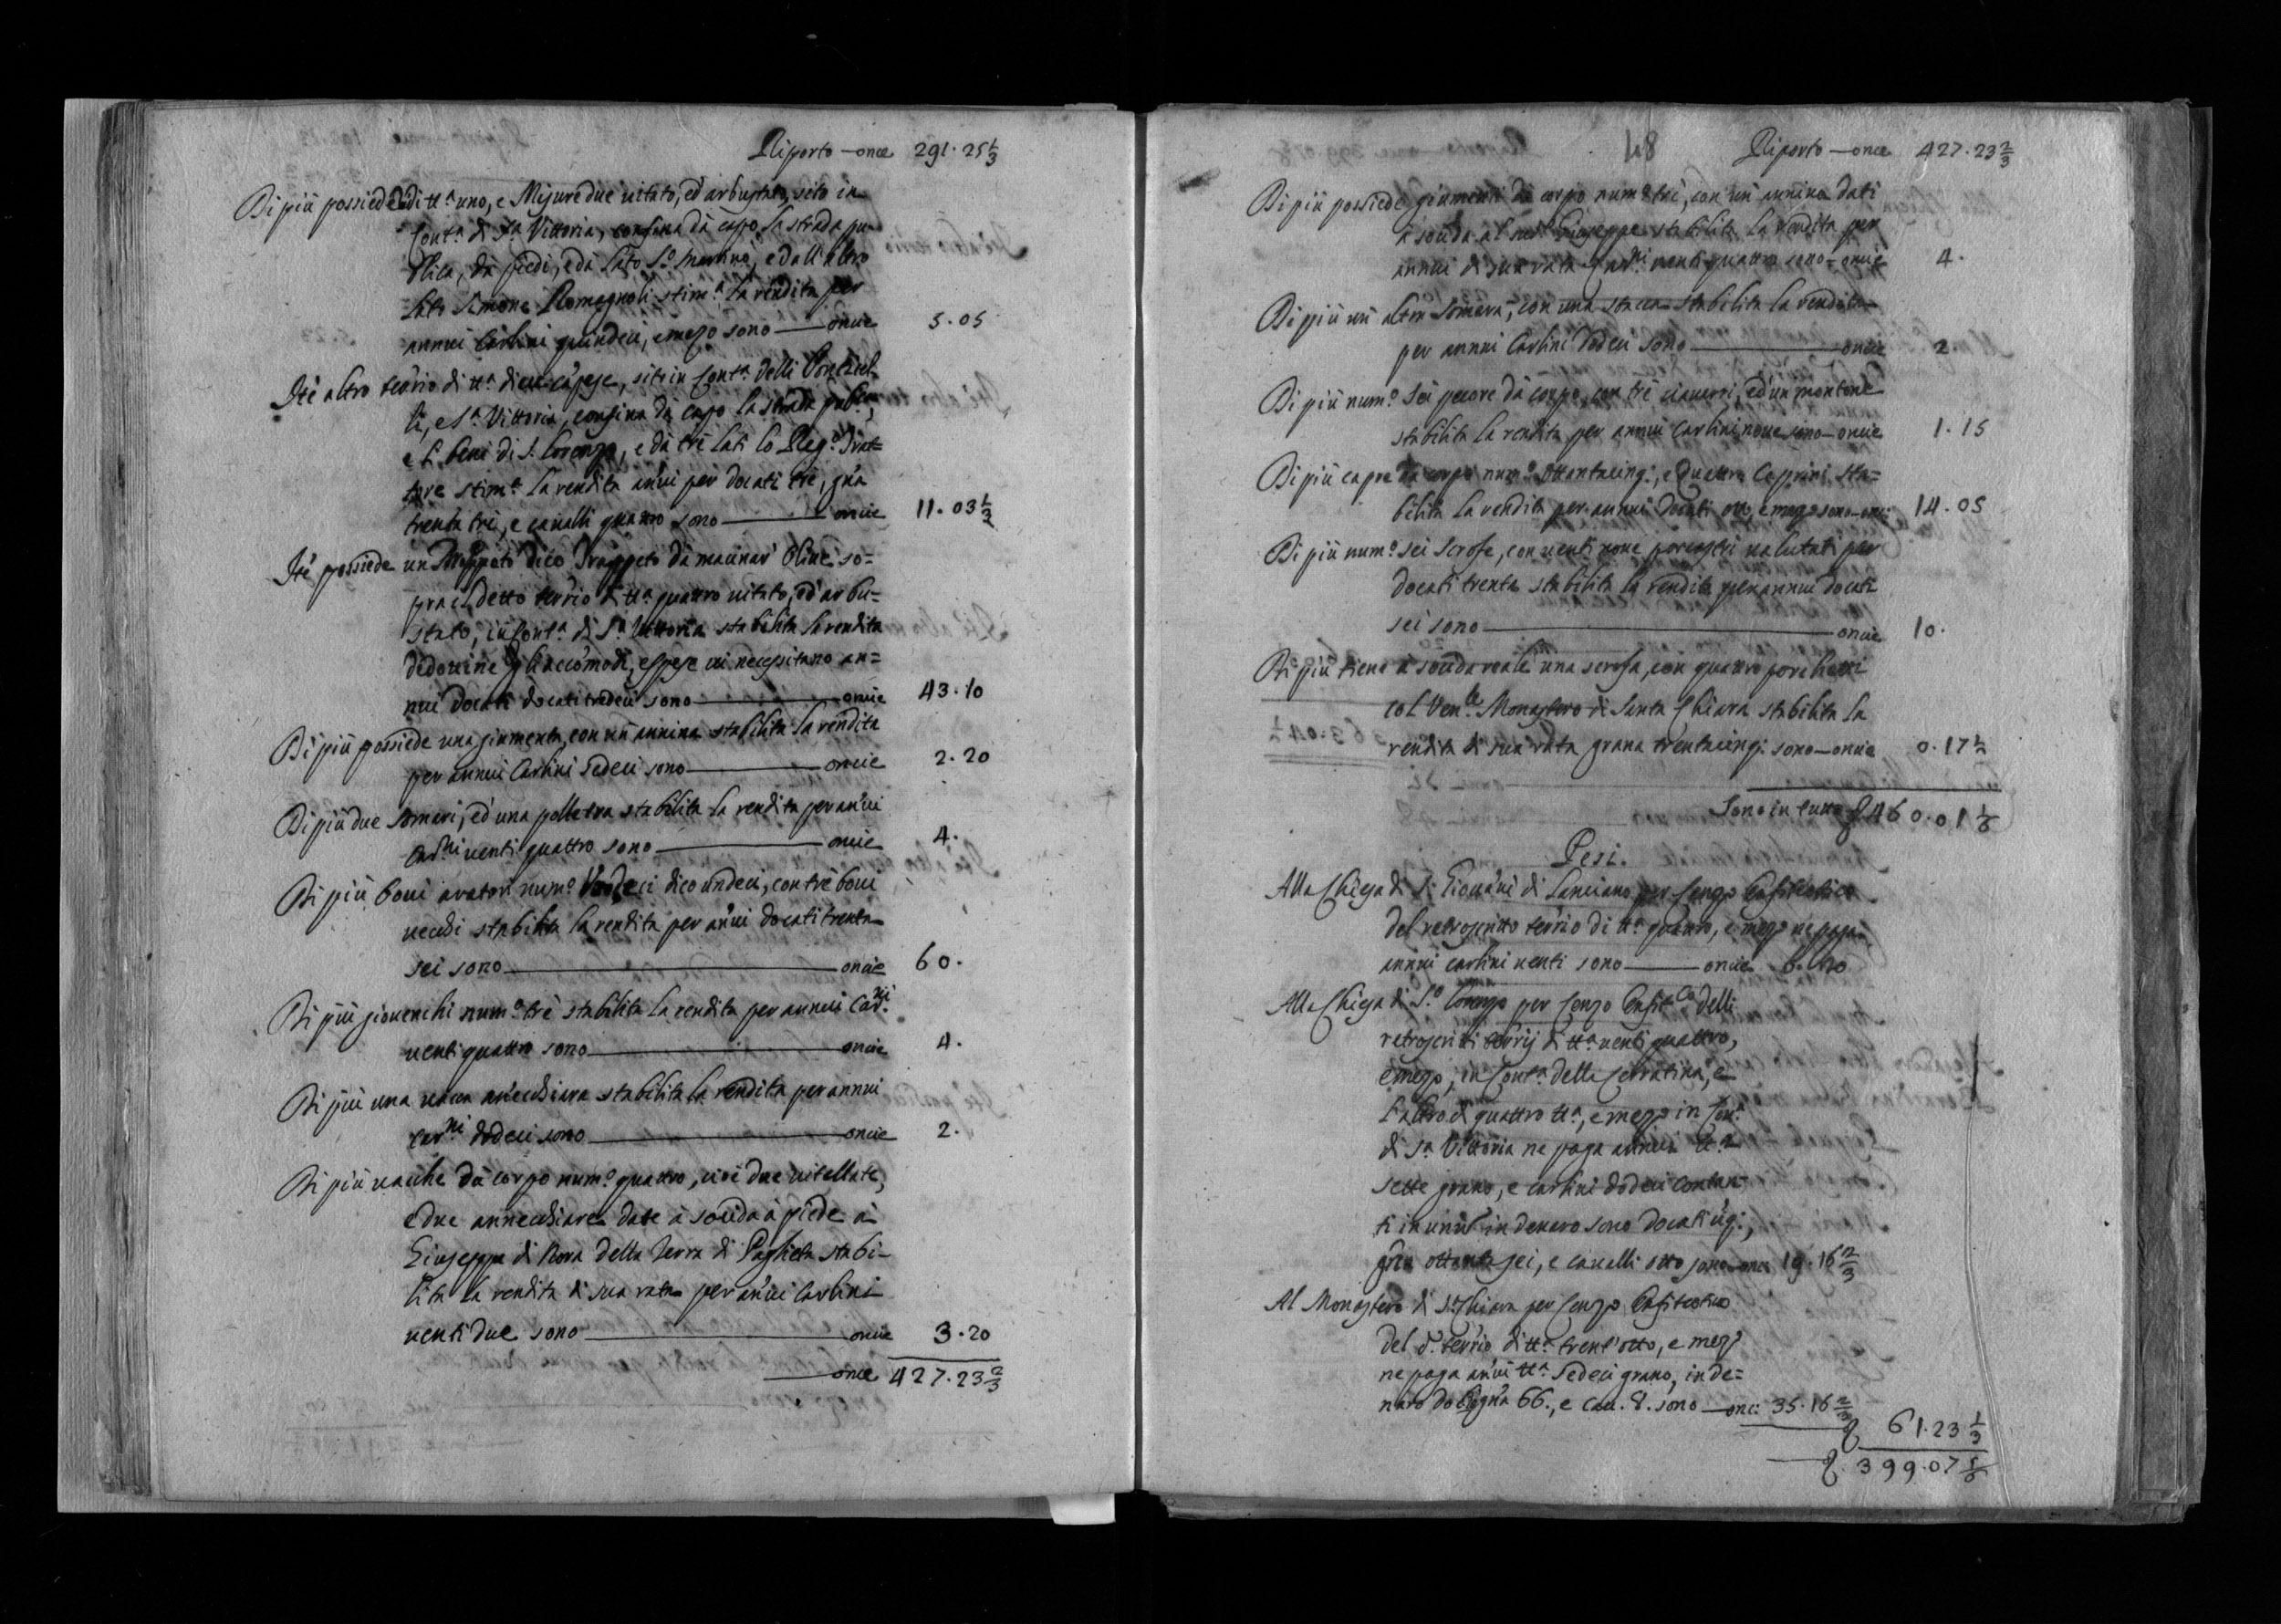 Riporto — once 291.25 1/3
Di più possiede di tt.ª uno, e Misure due vitato, ed arbustato, sito in
Cont.ª di S.ª Vittoria, confina dà capo la strada pu=
blica, dà piedi, e dà lato S.º Martino, e dall'altro
lato Simone Romagnoli stim.ª la rendita per
annui Carlini quindeci, e mezo sono — oncie 5.05
Itē altro terrio di tt.ª dieci capese, sito in Cont.ª delli Ponticel=
li, e S.ª Vittoria, confina dà capo la strada pub.ca,
e li beni di S. Lorenzo, e dà trè lati lo Reg.º Trat=
tore stim.ª la rendita an̄ui per docati trè, gr̄a
trenta trè, e cavalli quattro sono — oncie 11.03 1/3
Itē possiede un dico Trappeto dà macinar' Olive so=
pra il detto terrio di tt.ª quattro vitato, ed arbu=
stato, in Cont.ª di S.ª Vittoria stabilita la rendita
gl'accomodi, e spese vi necessitano an=
nui docati docati tredeci sono — oncie 43.10
Di più possiede una giumenta, con un' annina stabilita la rendita
per annui Carlini sedeci sono — oncie 2.20
Di più due somari, ed una polletra stabilita la rendita per an̄ui
Car.ni venti quattro sono — oncie 4.
Di più bovi aratori num.º dico undeci, con trè bovi
vecchi stabilita la rendita per an̄ui docati trenta
sei sono — oncie 60.
Di più giovenchi num.º trè stabilita la rendita per annui Car.ni
venti quattro sono — oncie 4.
Di più una vacca annecchiara stabilita la rendita per annui
car.ni dodeci sono — oncie 2.
Di più vacche dà corpo num.º quattro, cioè due vitellate,
e due annecchiare date à soccida à piede à
Giuseppe di Nova della Terra di Paglieta stabi=
lita la rendita di sua rata per an̄ui Carlini
venti due sono — oncie 3.20
once 427.23 2/3
48
Riporto — once 427.23 2/3
Di più possiede giumenti dà corpo num.º trè, con un' annina dati
à soccida al sud.º Giuseppe stabilita la rendita per
annui di sua rata Car.ni venti quattro sono — oncie 4.
Di più un' altra somara, con una stacca stabilita la rendita
per annui Carlini dodeci sono — oncie 2.
Di più num.º sei pecore dà corpo, con trè ciavarri, ed un montone
stabilita la rendita per annui Carlini nove sono — oncie 1.15
Di più capre dà corpo num.º ottantacinq:, e quattro Caprini sta=
bilita la rendita per annui docati otto, e mezo sono — onc: 14.05
Di più num.º sei scrofe, con venti nove porcastri valutati per
docati trenta stabilita la rendita per annui docati
sei sono — oncie 10.
Di più tiene à soccida reale una scrofa, con quattro porchetti
col Ven.le Monastero di Santa Chiara stabilita la
rendita di sua rata grana trentacinq: sono — oncie 0.17 1/2
Sono in tutto 460.01 1/6
Pesi.
Alla Chiesa di S. Giovan̄i di Lanciano per Censo Enfiteotico
del retroscritto terrio di tt.ª quattro, e mezo ne paga
annui carlini venti sono — oncie 6.20
Alla Chiesa di S.º Lorenzo per Censo Enfit.co delli
retroscritti terrij di tt.ª venti quattro,
e mezo, in Cont.ª della Cerratina, e
l'altro di quattro tt.ª, e mezzo in Con.ª
di S.ª Vittoria ne paga annui tt.ª
sette grano, e carlini dodeci contan=
ti in unū in denaro sono docati cinq:,
gr̄a ottanta sei, e cavalli otto sono — onc: 19.16 2/3
Al Monastero di S.ª Chiara per Censo Enfiteotico
del d.º terrio di tt.ª trent'otto, e mezo
ne paga an̄ui tt.ª sedeci grano, in de=
naro gr̄a 66., e cav. 8. sono — onc: 35.16 2/3
61.23 1/3
399.07 5/6